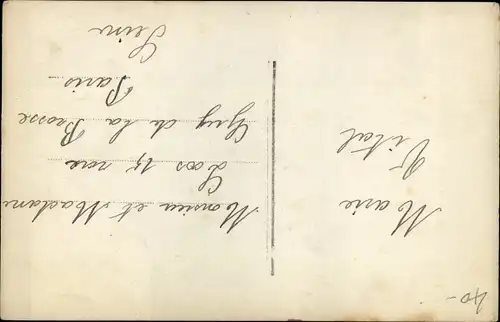 Marie
Vital
Monsieur et Madame
Loos 15 rue
Guy de la Brosse
Paris
Seine
40-